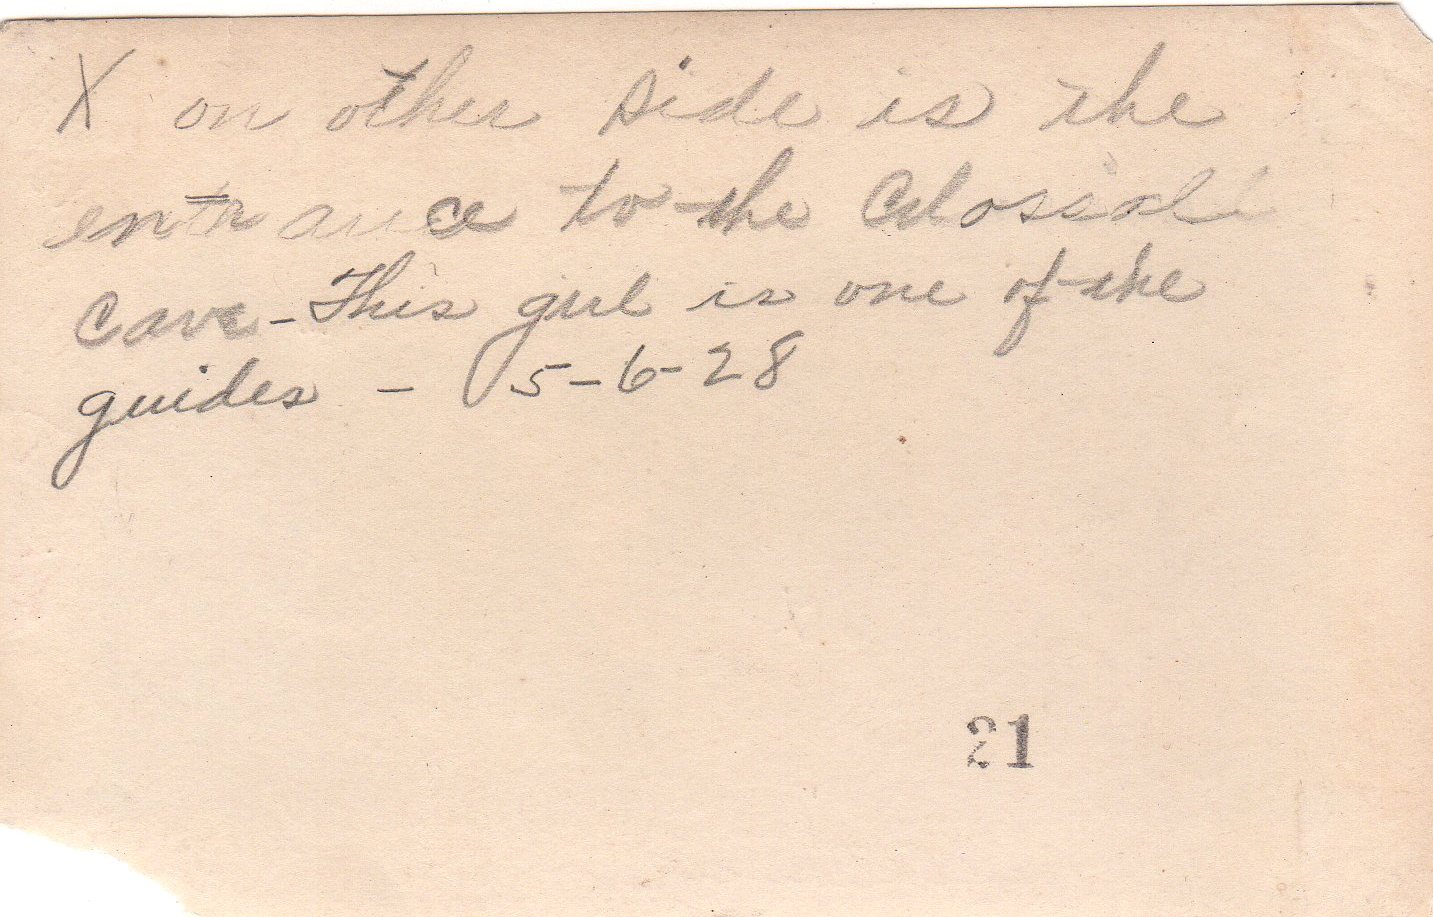 X on other side is the
entrance to the Colossal
Cave - This girl is one of the
guides - 5-6-28
21